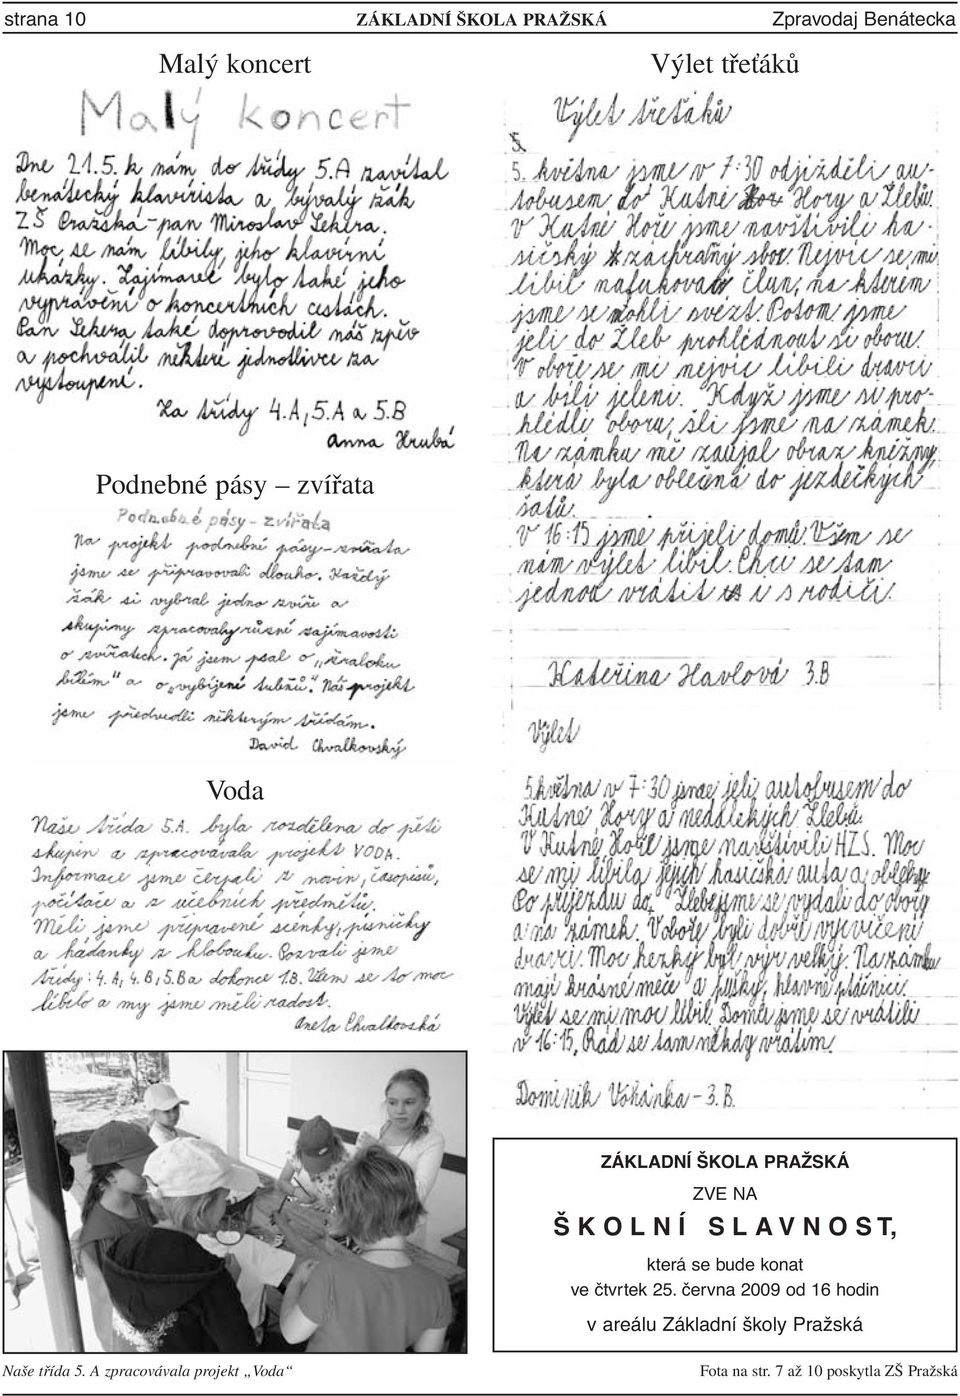 strana 10
ZÁKLADNÍ ŠKOLA PRAŽSKÁ
Zpravodaj Benátecka
Malý koncert
Malý koncert
Dne 21.5. k nám do třídy 5.A zavítal
benátecký klavírista a bývalý žák
ZŠ Pražská - pan Miroslav Sekera.
Moc se nám líbily jeho klavírní
ukázky. Zajímavé bylo také jeho
vyprávění o koncertních cestách.
Pan Sekera také doprovodil náš zpěv
a pochválil některé jednotlivce za
vystoupení.
Za třídy 4.A, 5.A a 5.B
Anna Hrubá
Podnebné pásy – zvířata
Podnebné pásy - zvířata
Na projekt podnebné pásy - zvířata
jsme se připravovali dlouho. Každý
žák si vybral jedno zvíře a
skupiny zpracovaly různé zajímavosti
o zvířatech. Já jsem psal o „žraloku
bílém“ a o „vybíjené tuleňů“. Náš projekt
jsme předvedli některým třídám.
David Chvalkovský
Voda
Naše třída 5.A. byla rozdělena do pěti
skupin a zpracovávala projekt VODA.
Informace jsme čerpali z novin, časopisů,
počítače a z učebních předmětů.
Měli jsme připravené scénky, písničky
a hádanky z klobouku. Pozvali jsme
třídy: 4.A, 4.B, 5.B a dokonce 1.B. Všem se to moc
líbilo a my jsme měli radost.
Aneta Chvalkovská
Naše třída 5. A zpracovávala projekt „Voda“
Výlet třeťáků
Výlet třeťáků
5.
5. května jsme v 7:30 odjížděli au-
tobusem do Kutné Hory a Žlebů.
V Kutné Hoře jsme navštívili ha-
sičský záchranný sbor. Nejvíc se mi
líbil nafukovací člun, na kterém
jsme se mohli svézt. Potom jsme
jeli do Žleb prohlédnout si oboru.
V oboře se mi nejvíc líbili dravci
a bílí jeleni. Když jsme si pro-
hlédli oboru, šli jsme na zámek.
Na zámku mě zaujal obraz kněžny,
která byla oblečená do jezdeckých
šatů.
V 16:15 jsme přijeli domů. Všem se
nám výlet líbil. Chci se tam
jednou vrátit i s rodiči.
Kateřina Havlová 3.B
Výlet
5. května v 7:30 jsme jeli autobusem do
Kutné Hory a nedalekých Žlebů.
V Kutné Hoře jsme navštívili HZS. Moc
se mi líbila jejich hasičská auta a obleky.
Po příjezdu do Žleb jsme se vydali do obory
a na zámek. V oboře byli dobře vycvičení
dravci. Moc hezký byl výr velký. Na zámku
mají krásné meče a pušky, hlavně ptáčnici.
Výlet se mi moc líbil. Domů jsme se vrátili
v 16:15. Rád se tam někdy vrátím.
Dominik Vohánka - 3.B.
ZÁKLADNÍ ŠKOLA PRAŽSKÁ
ZVE NA
ŠKOLNÍ SLAVNOST,
která se bude konat
ve čtvrtek 25. června 2009 od 16 hodin
v areálu Základní školy Pražská
Fota na str. 7 až 10 poskytla ZŠ Pražská